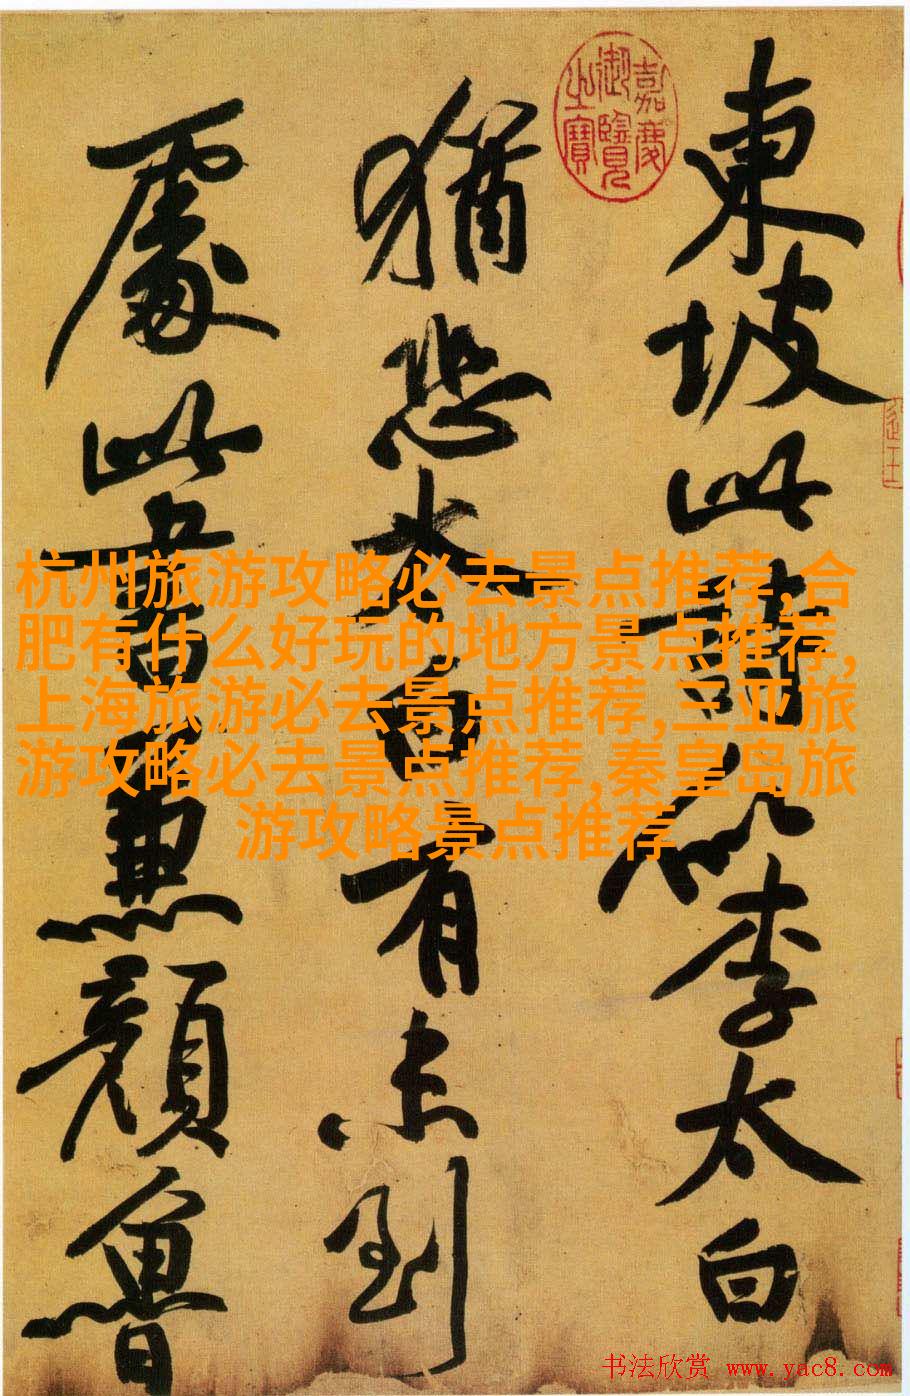 東坡此詩似李太白
猶恐太白有未到
處此書兼顏魯
嘉慶
御覽
之寶
杭州旅游攻略必去景点推荐,合
肥有什么好玩的地方景点推荐,
上海旅游必去景点推荐,三亚旅
游攻略必去景点推荐,秦皇岛旅
游攻略景点推荐
书法欣赏 www.yac8.com